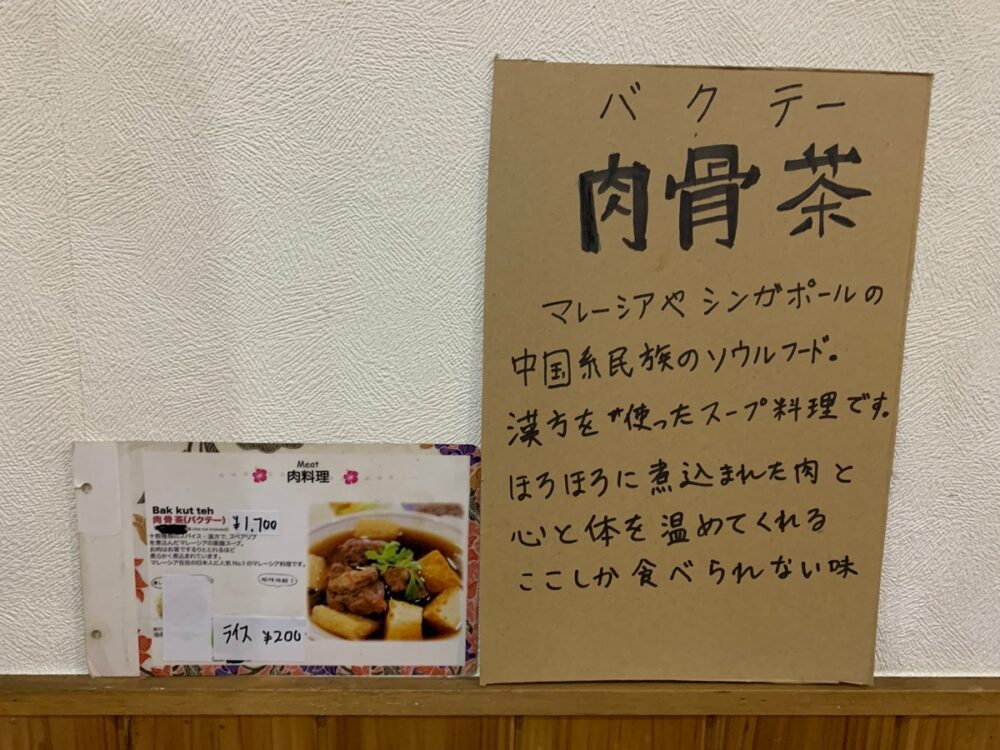 バクテー
肉骨茶
マレーシアや シンガポールの
中国系民族のソウルフード。
漢方を使ったスープ料理です。
ほろほろに煮込まれた肉と
心と体を温めてくれる
ここしか食べられない味
Meat
肉料理
Bak kut teh
肉骨茶(バクテー)
¥1,700
十数種類のスパイス・漢方で、スペアリブ
を煮込んだマレーシアの薬膳スープ。
お肉はお箸でするりととれるほど
柔らかく煮込まれています。
マレーシア在住の日本人に人気No.1のマレーシア料理です。
ライス ¥200